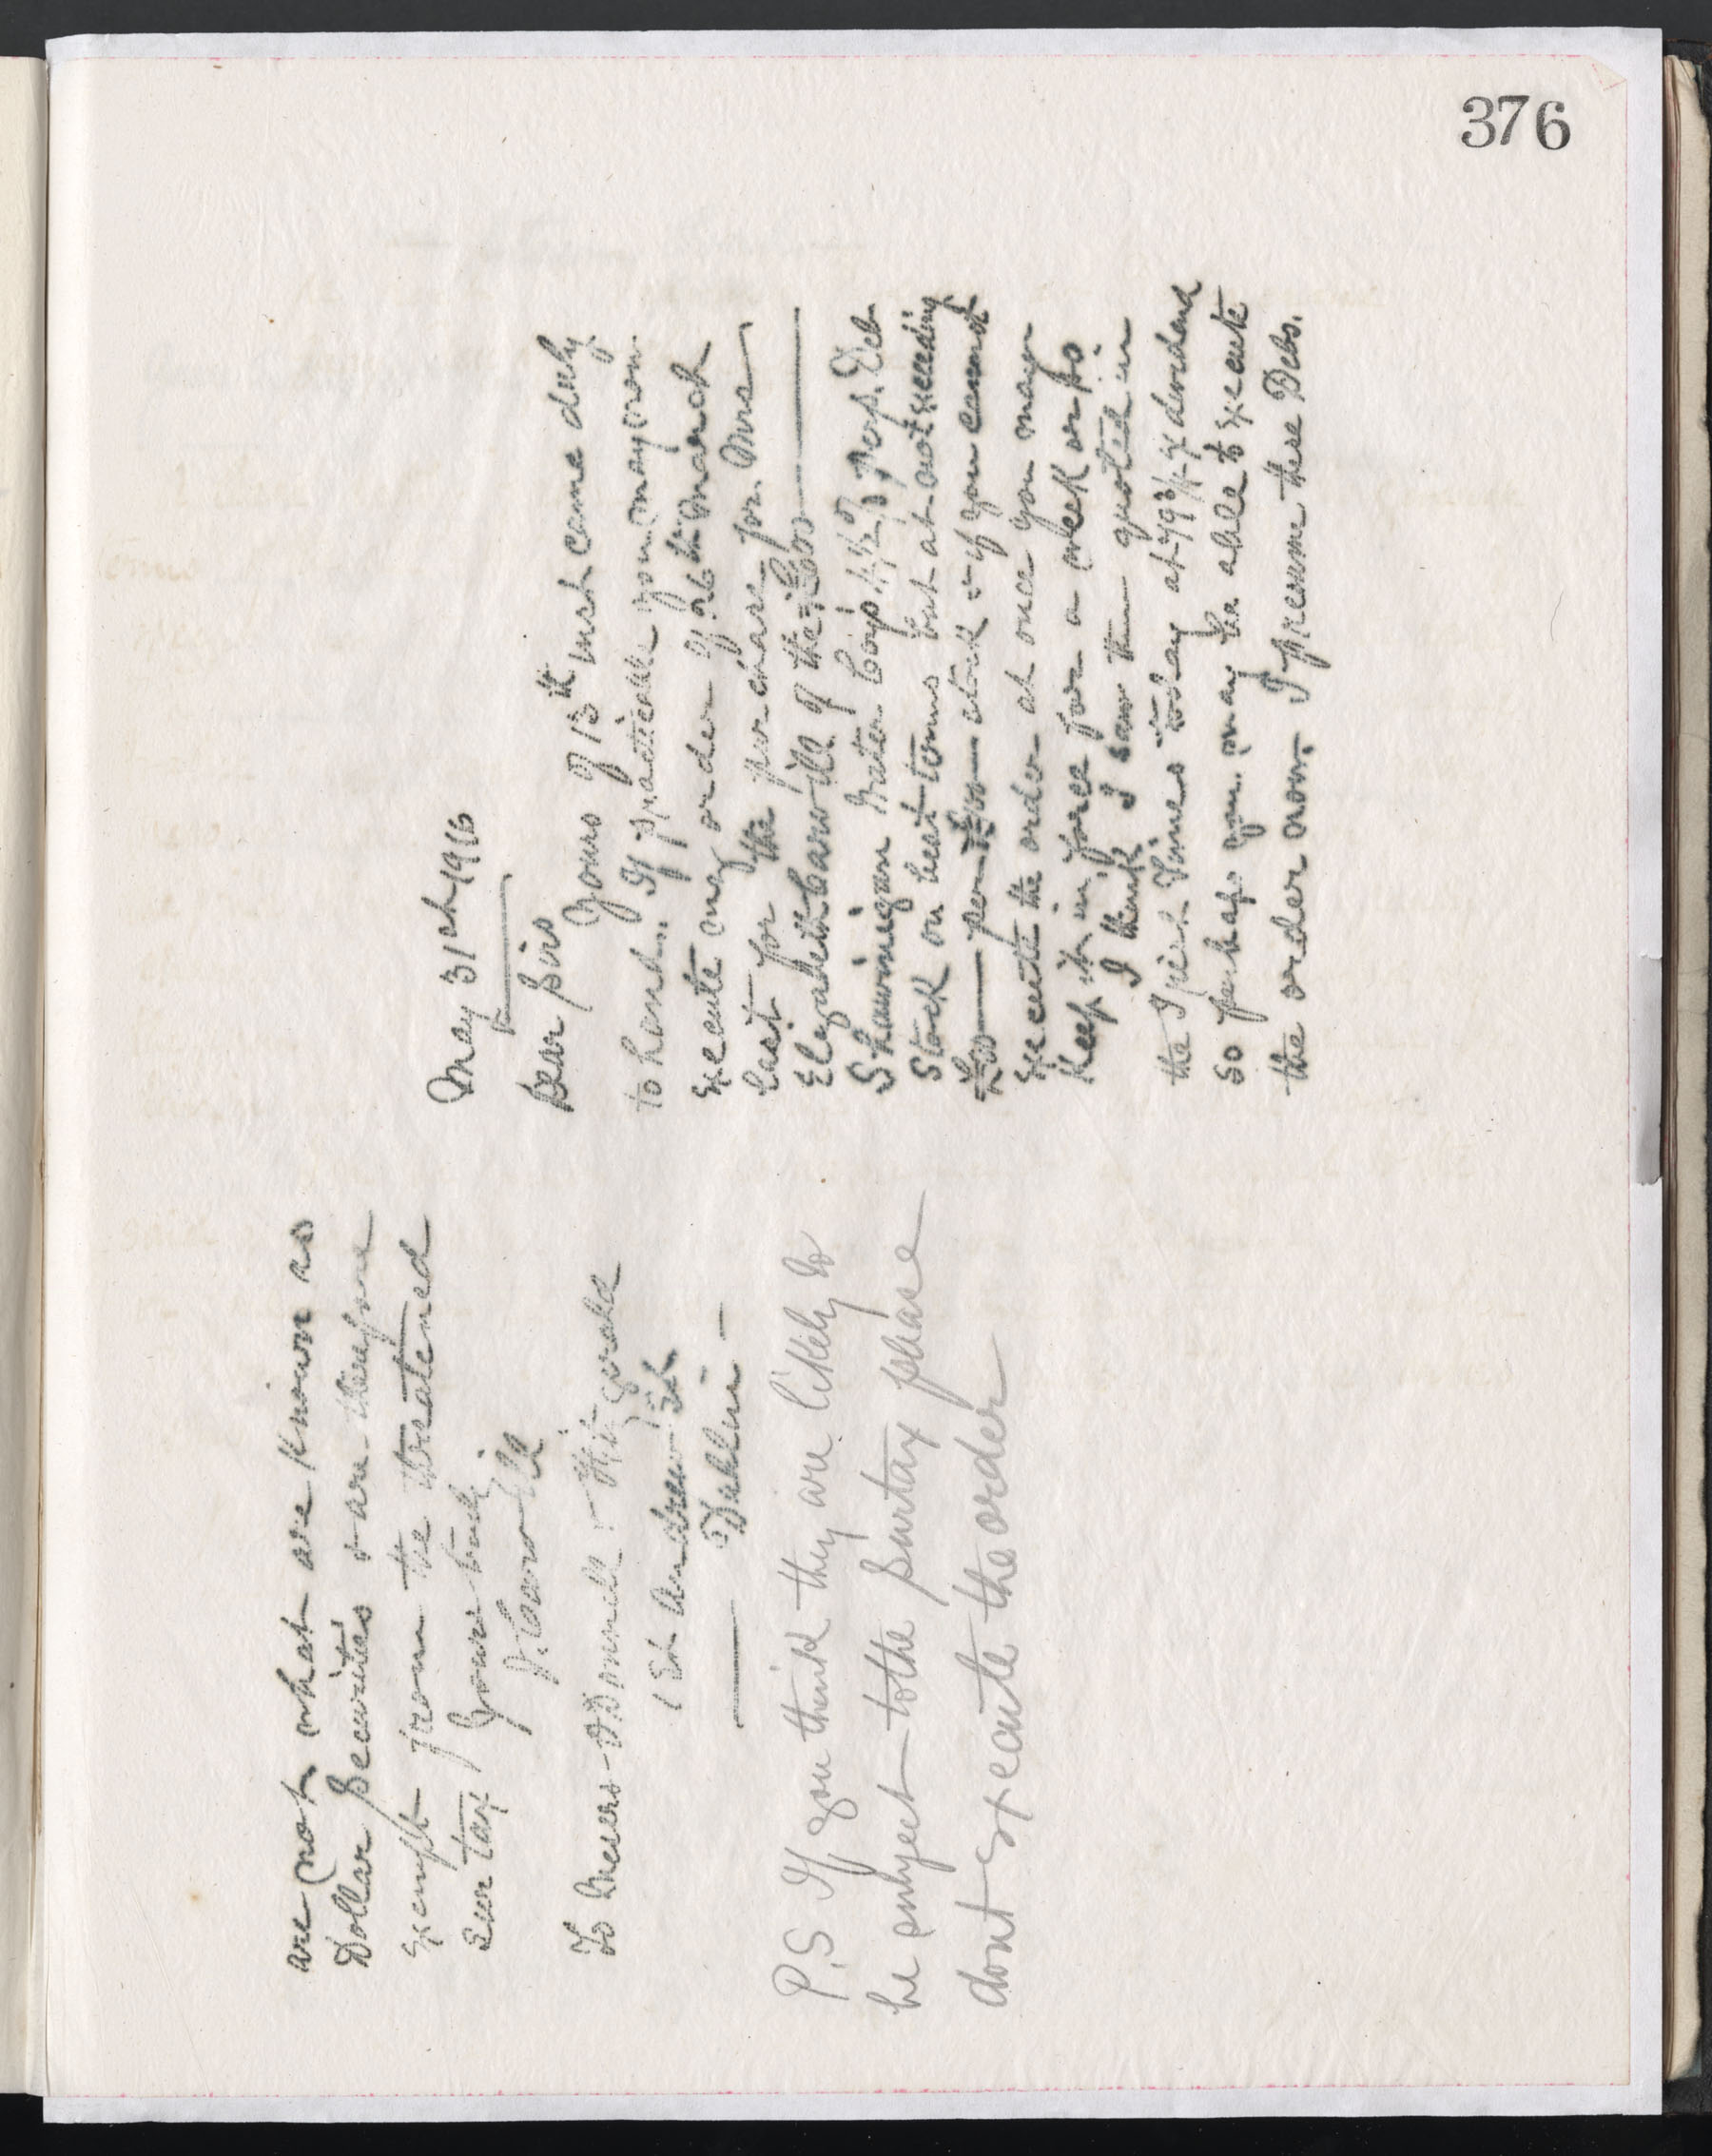 376
May 31st 1916
Dear Sirs
Yours of 13th inst came duly
to hand. If practicable you may now
execute my order of 26th March
last for the purchase for Mrs
Elizabeth Carvill of the
Shawinigan Water Coy's 4½% Perp. Deb
Stock on best terms but at not exceeding
per £100 stock & if you cannot
execute the order at once you may
keep it in force for a week or so.
I think I saw them quoted in
the Irish Times today at 79¾ ex dividend
so perhaps you may be able to execute
the order now. I presume these Debs.
are not what are known as
Dollar Securities & are therefore
exempt from the threatened
Sur tax Yours truly
Carvill
To Messrs O'Donnell & Fitzgerald
1 St Andrew St
Dublin
P.S If you think they are likely to
be subject to the Surtax please
dont execute the order